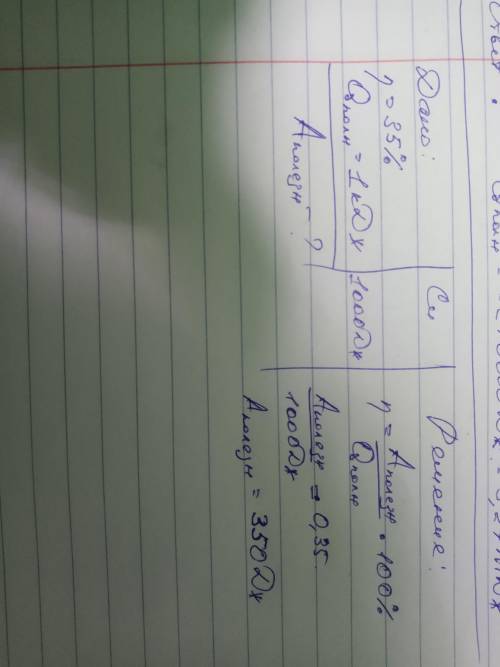 Дано:
η = 35%
Qполн = 1кДж
Aполезн - ?
Си
1000Дж
Решение:
η = Aполезн / Qполн · 100%
Aполезн / 1000Дж = 0,35.
Aполезн = 350Дж